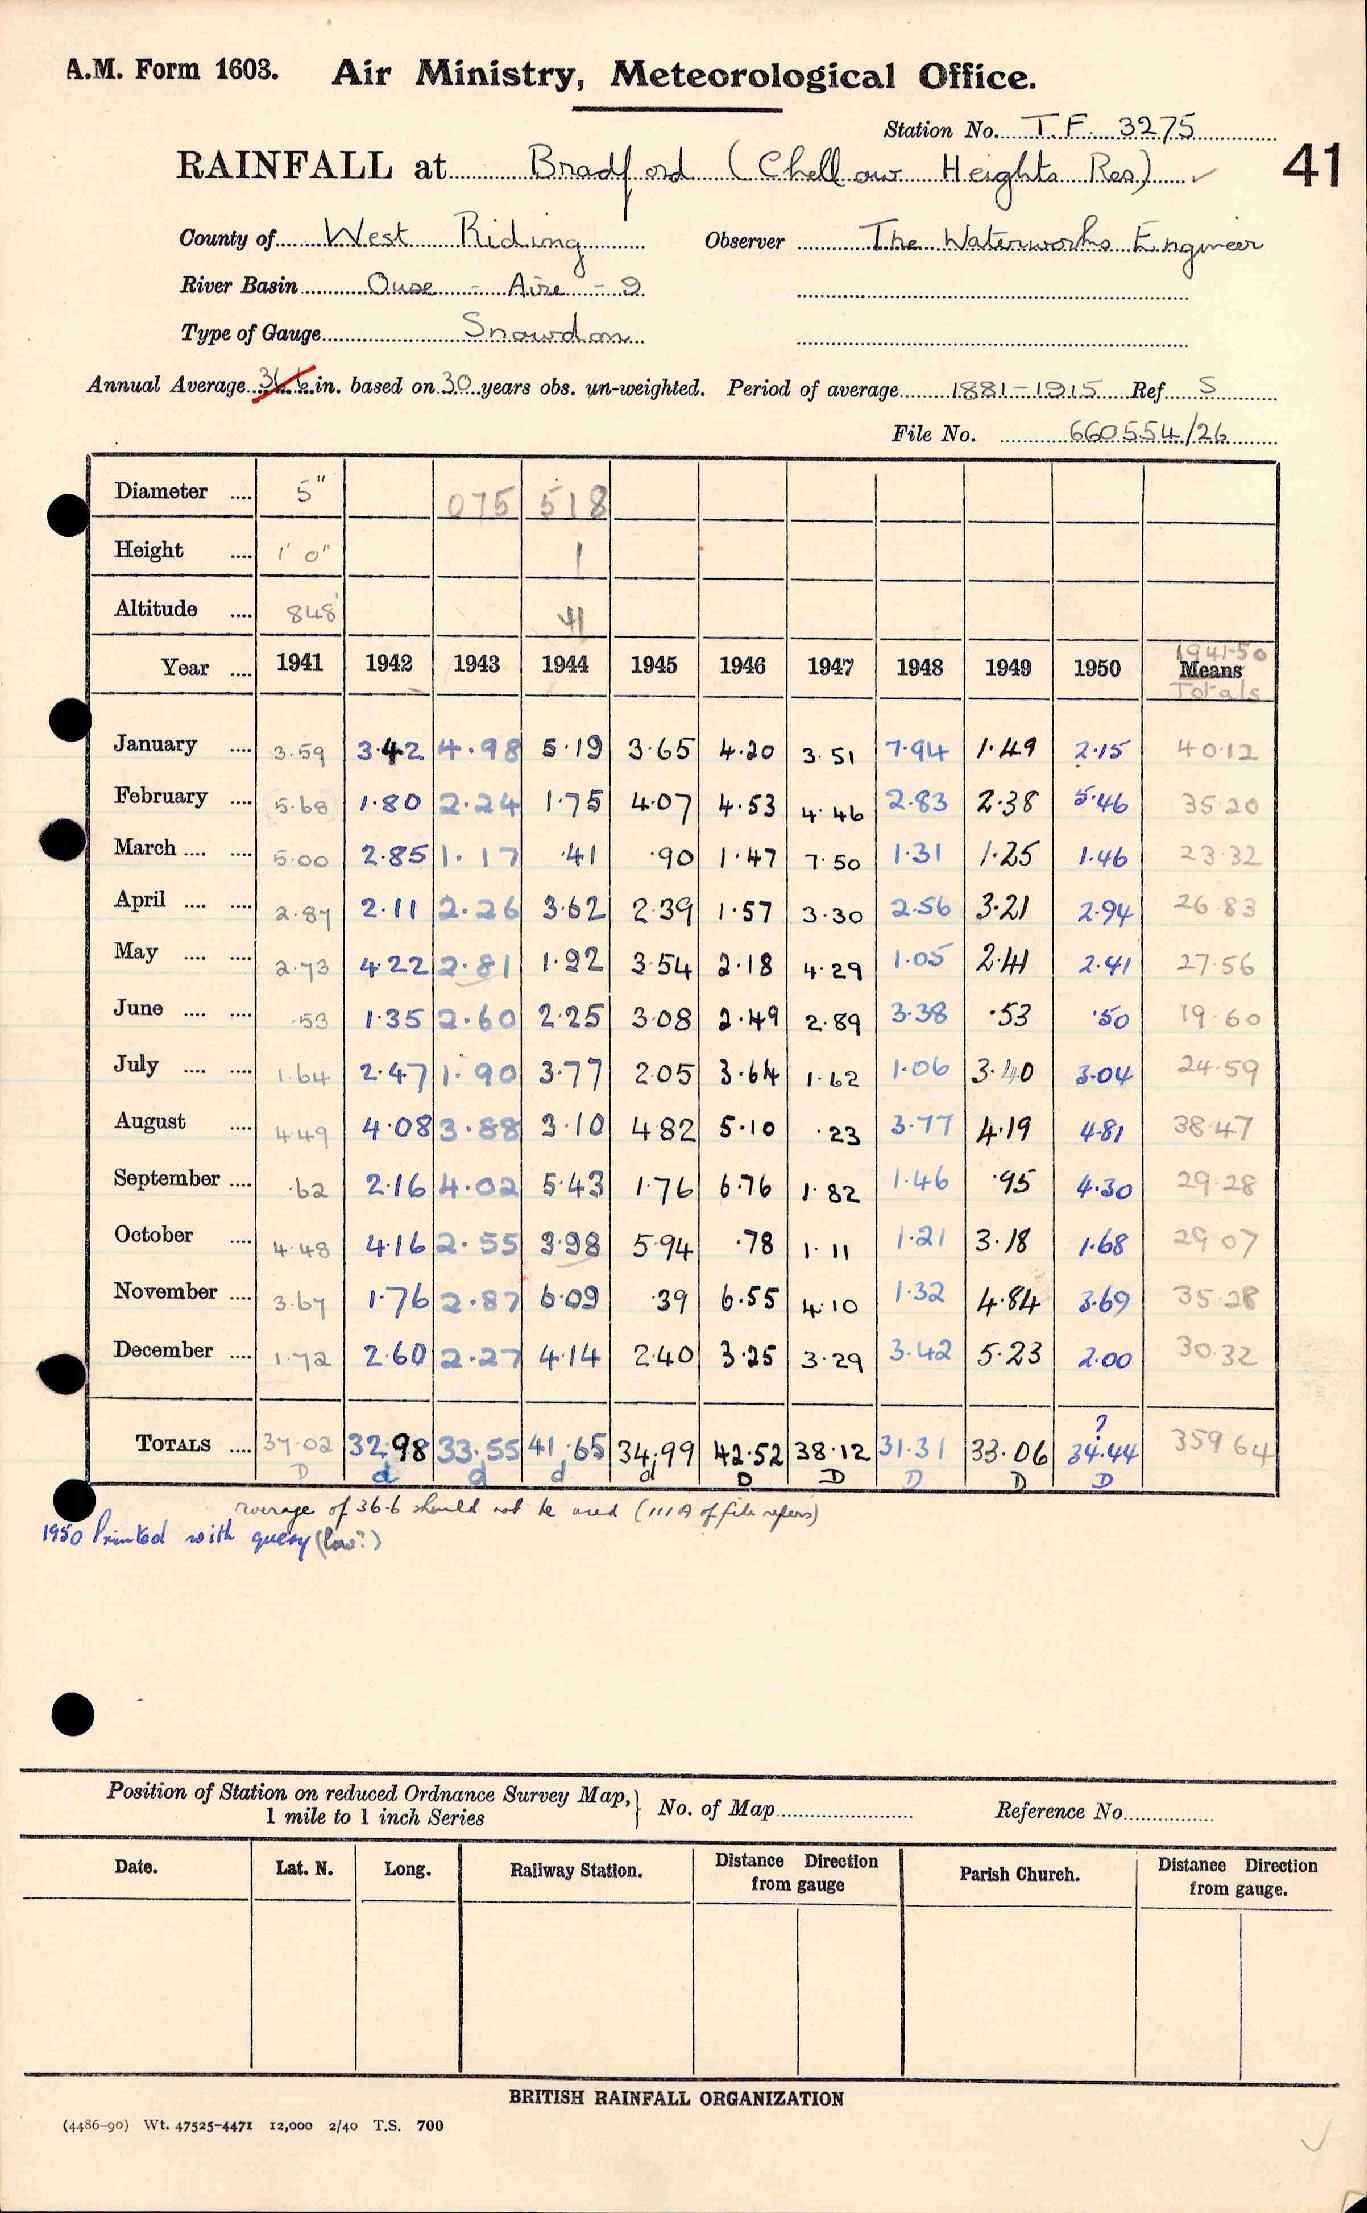 A.M. Form 1603. Air Ministry, Meteorological Office.
Station No. T.F. 3275
RAINFALL at Bradford (Chellow Heights Res) ✓ 41
County of West Riding Observer The Waterworks Engineer
River Basin Ouse - Aire - 9
Type of Gauge Snowdon
Annual Average 36.6 in. based on 30 years obs. un-weighted. Period of average 1881-1915 Ref S
File No. 660554/26
Diameter .... 5" 075 518
Height .... 1' 0" 1
Altitude .... 848' 41
Year .... 1941 1942 1943 1944 1945 1946 1947 1948 1949 1950 1941-50 Means Totals
January .... 3.59 3.42 4.98 5.19 3.65 4.20 3.51 7.94 1.49 2.15 40.12
February .... 5.68 1.80 2.24 1.75 4.07 4.53 4.46 2.83 2.38 5.46 35.20
March .... .... 5.00 2.85 1.17 .41 .90 1.47 7.50 1.31 1.25 1.46 23.32
April .... .... 2.87 2.11 2.26 3.62 2.39 1.57 3.30 2.56 3.21 2.94 26.83
May .... .... 2.73 4.22 2.81 1.92 3.54 2.18 4.29 1.05 2.41 2.41 27.56
June .... .... .53 1.35 2.60 2.25 3.08 2.49 2.89 3.38 .53 .50 19.60
July .... .... 1.64 2.47 1.90 3.77 2.05 3.64 1.62 1.06 3.40 3.04 24.59
August .... 4.49 4.08 3.88 3.10 4.82 5.10 .23 3.77 4.19 4.81 38.47
September .... .62 2.16 4.02 5.43 1.76 6.76 1.82 1.46 .95 4.30 29.28
October .... 4.48 4.16 2.55 3.98 5.94 .78 1.11 1.21 3.18 1.68 29.07
November .... 3.67 1.76 2.87 6.09 .39 6.55 4.10 1.32 4.84 3.69 35.28
December .... 1.72 2.60 2.27 4.14 2.40 3.25 3.29 3.42 5.23 2.00 30.32
?
TOTALS .... 37.02 32.98 33.55 41.65 34.99 42.52 38.12 31.31 33.06 34.44 359.64
D d d d d D D D D D
average of 36.6 should not be used (111A of file refers)
1950 Printed with query (low?)
Position of Station on reduced Ordnance Survey Map, 1 mile to 1 inch Series } No. of Map Reference No.
Date. Lat. N. Long. Railway Station. Distance Direction from gauge Parish Church. Distance Direction from gauge.
BRITISH RAINFALL ORGANIZATION
(4486-90) Wt. 47525-4471 12,000 2/40 T.S. 700